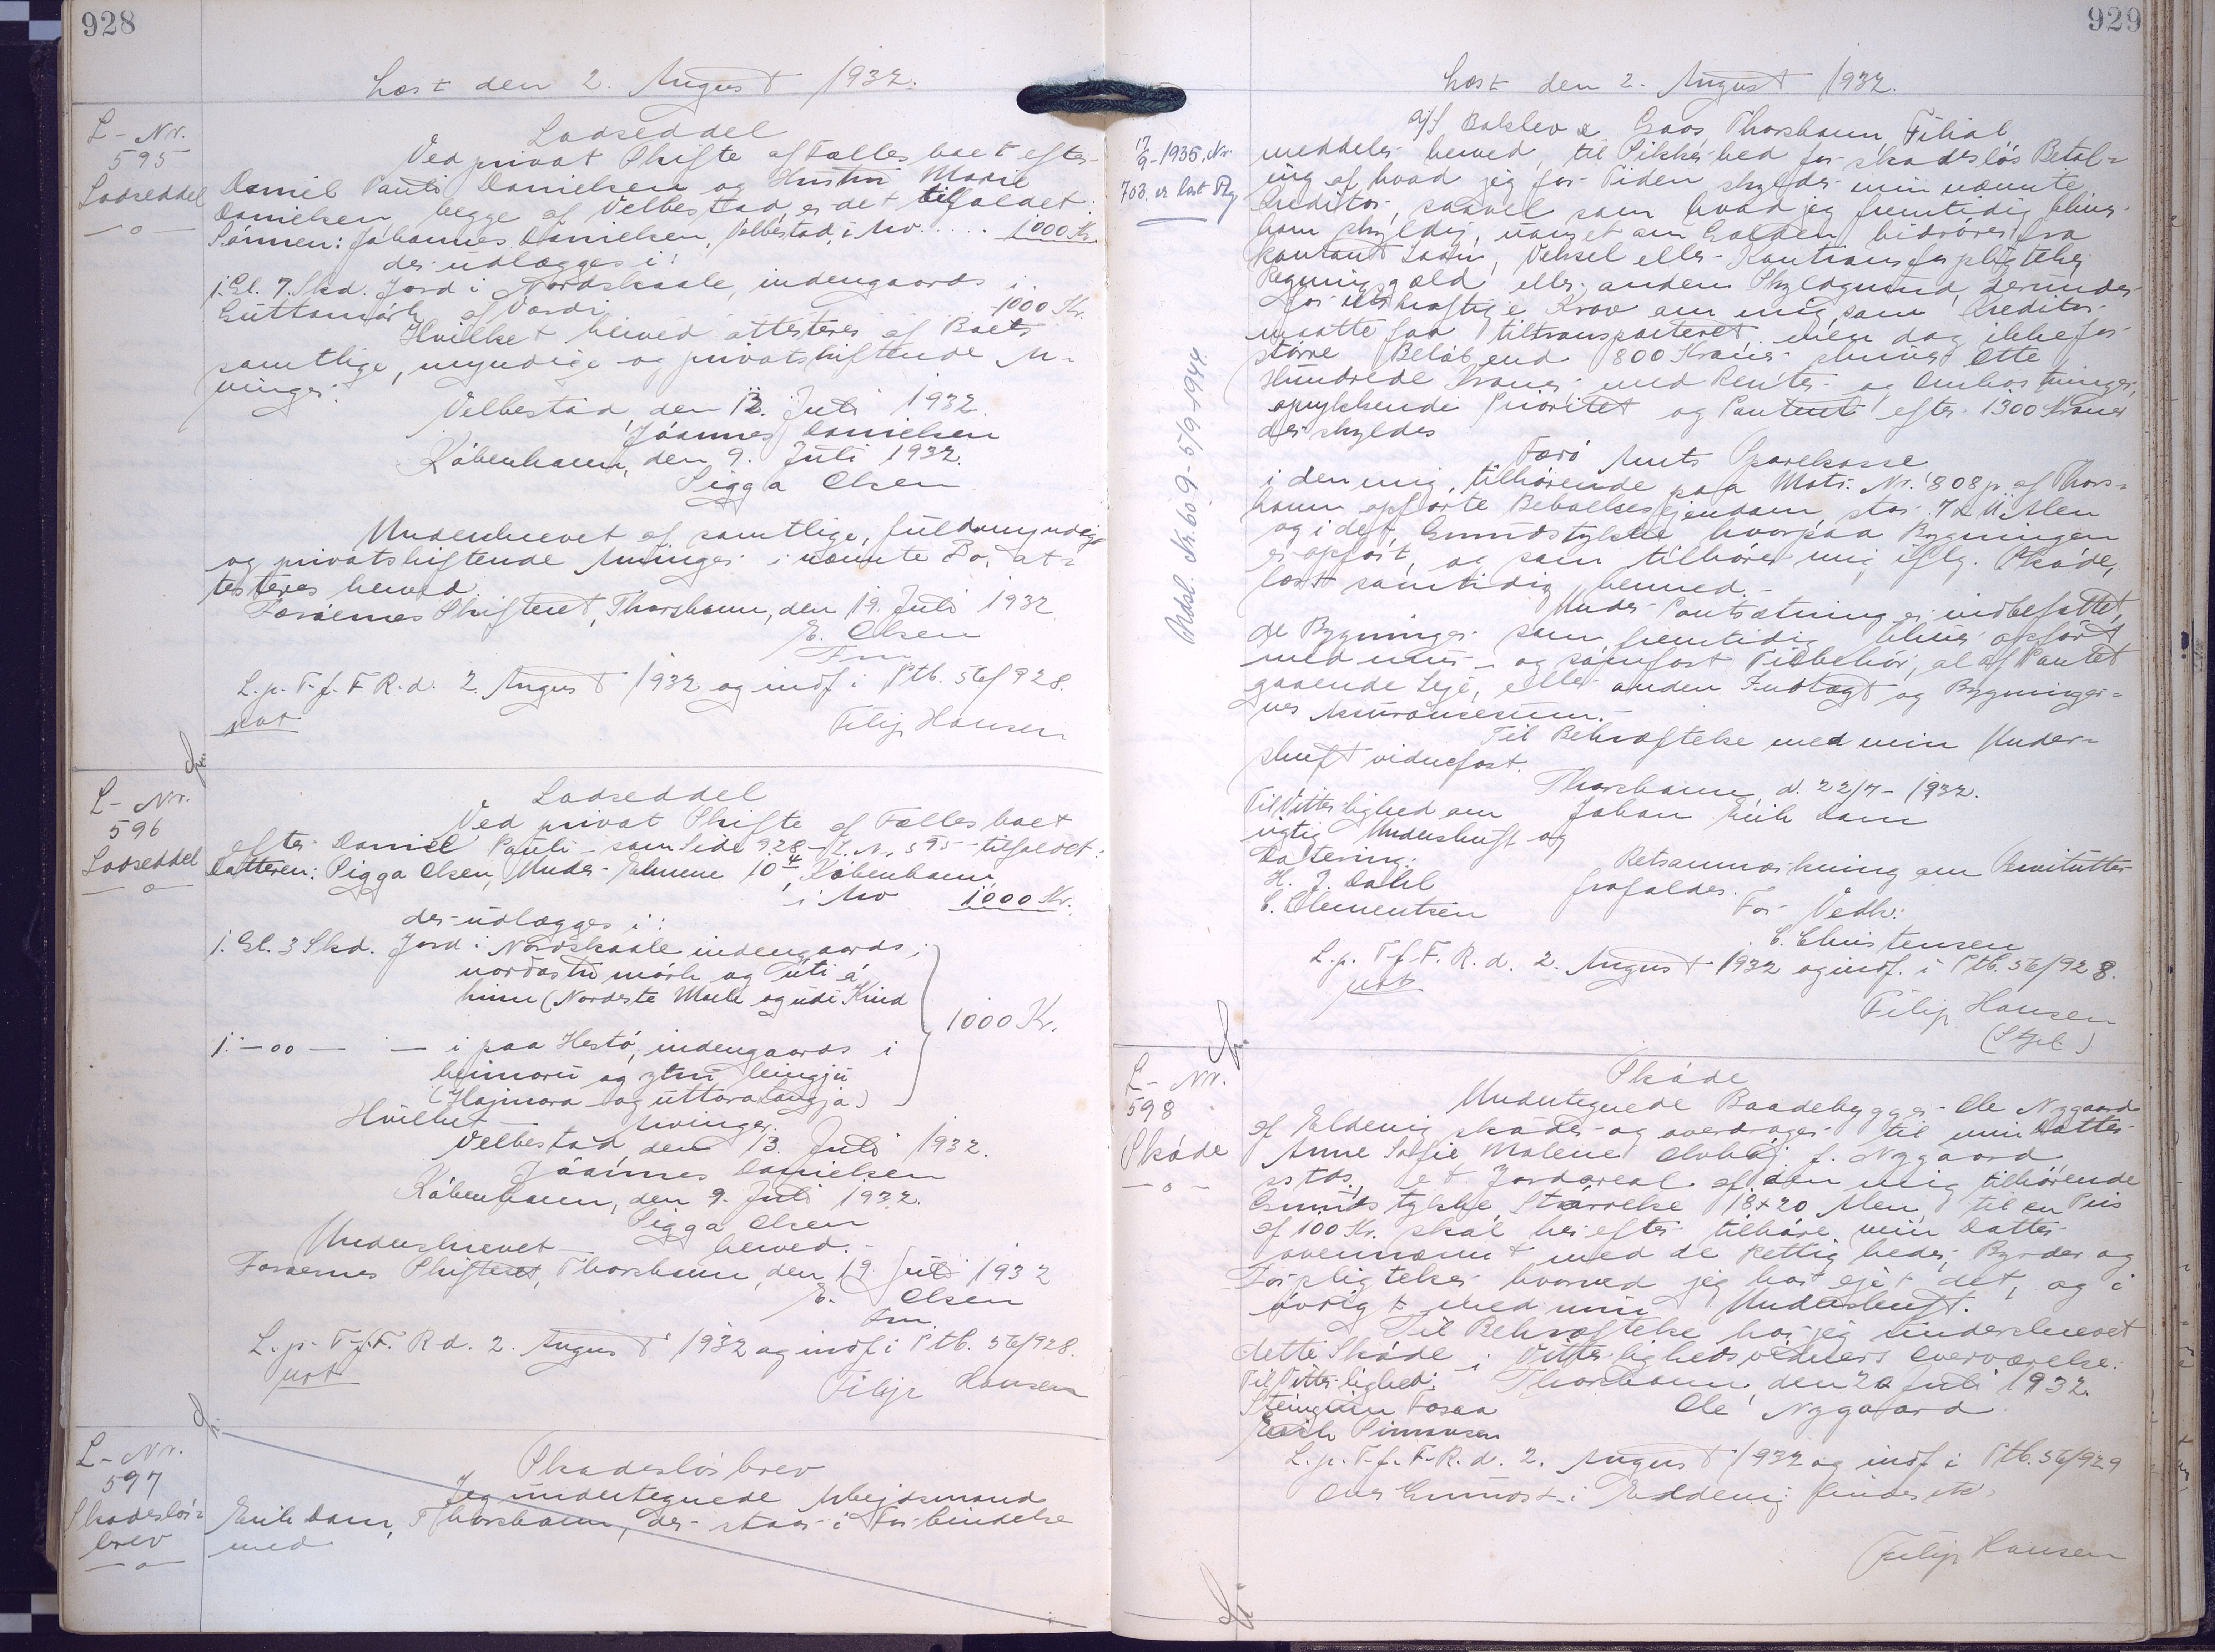 928
Læst den 2. August 1932.
L-Nr.
595
Lodseddel
Lodseddel
Ved privat Skifte af Fællesboet efter
Daniel Pauli Danielsen og Hustru Marie
Danielsen, begge af Velbestad, er det tilfaldet:
Sønnen: Jóhannes Danielsen, Velbestad, i Arv.... 1000 Kr.
der udlægges i:
1. Gl. 7 Skd. Jord i Nordskaale, indengaards i
af Vardi 1000 Kr.
Hvilket herved attesteres af Boets
samtlige, myndige og privatskiftende Ar-
vinger.
Velbestad den 13. Juli 1932.
Jóannes Danielsen
København, den 9. Juli 1932.
Sigga Olsen
Underskrevet af samtlige, fuldmyndige
og privatskiftende Arvinger i nævnte Bo, at-
testeres herved.
Færøernes Skifteret, Thorshavn, den 19. Juli 1932
E. Olsen
Fm.
L.p.T.f.F.R.d. 2. August 1932 og indf i Ptb. 56/928.
Filip Hansen
L-Nr.
596
Lodseddel
Lodseddel
Ved privat Skifte af Fællesboet
efter Daniel Pauli - som Side 928 - L.Nr. 595 - tilfaldet:
Datteren: Sigga Olsen, Under Elmene 10 4, København,
i Arv 1000 Kr.
der udlægges i:
1. Gl. 3 Skd. Jord i Nordskaale indengaards i
nordastu mørk og úti á
(Nordeste Mark og udi
1000 Kr.
1. -oo- - i paa Hestø, indengaards i
heimaru og ytru leingju
(Hajmara og uttara Langja)
Hvilket - Arvinger.
Velbestad, den 13. Juli 1932.
Jóannes Danielsen
København, den 9. Juli 1932.
Sigga Olsen
Underskrevet - herved.-
Færøernes Skifteret, Thorshavn, den 19. Juli 1932
E. Olsen
Fm.
L.p.T.f.F.R.d. 2. August 1932 og indf i Ptb. 56/928.
Filip Hansen
L-Nr.
597
Skadesløs-
brev
Skadesløsbrev
Jeg undertegnede Arbejdsmand
Erik Dam, Thorshavn, der staar i Forbindelse
med
929
Læst den 2. August 1932.
17/9-1935, Nr.
703 er læst
Nr. 60 9-5/9-1944.
A/S Balslev & Thorshavn Filial
meddeler herved, til Sikkerhed for skadesløs Betal-
ing af hvad jeg for Tiden skylder min nævnte
Creditor, saavel som hvad jeg fremtidig bliver
ham skyldig, uanset om Gælden hidrører fra
kontant Laan, Veksel eller Kautionsforpligtelse,
Regningsgæld eller anden Skyldgrund, derunder
for retskraftige Krav om mig, som Creditor
maatte faa tiltransporteret, men dog ikke for
større Beløb end 800 Kroner skriver Otte
Hundrede Kroner med Renter og Omkostninger,
oprykkende Prioritet og Panteret efter 1300 Kroner
der skyldes
Færø Amts Sparekasse
i den mig tilhørende paa Matr. Nr. 808 p. af Thors-
havn opførte Beboelsesejendom, stor Alen
og i det Grundstykke hvorpaa Bygningen
er opført, og som tilhører mig iflg. Skøde,
læst samtidig hermed.-
Under Pantsætning er indbefattet,
de Bygninger som fremtidig bliver opført
med mur- og sømfast Tilbehør, al af Pantet
gaaende Leje, eller anden Indtægt og Bygninger-
nes Assurancesum.-
Til Bekræftelse med min Under-
skrift vidnefast.
Thorshavn, d. 22/7-1932.
Til Vitterlighed om Johan Erik Dam
rigtig Underskrift og
Datering:
H. J. Dahl
C. Clementsen
Retsanmærkning om Servitutter
frafaldes.
For Vedk:
C. Christensen
L.p.T.f.F.R.d. 2. August 1932 og indf. i Ptb. 56/928.
Filip Hansen
L-Nr.
598
Skøde
Skøde
Undertegnede Baadebygger Ole Nygaard
af Eldevig skøder og overdrager til min Datter
Anne Sofie Malene f. Nygaard
ssteds, et Jordareal af den mig tilhørende
Grundstykke, Størrelse 18x20 Alen, til en Pris
af 100 Kr. skal herefter tilhøre min Datter
ovennævnt med de Rettigheder, Byrder og
Forpligtelser hvormed jeg har ejet det, og i
øvrigt med min Underskrift.
Til Bekræftelse har jeg underskrevet
dette Skøde i Vitterlighedsvidners Overværelse.
Til Vitterlighed: Thorshavn, den 20 Juli 1932.
Steingrim Fossá Ole Nygaard
Erik Simonsen
L.p.T.f.F.R.d. 2. August 1932 og indf i Ptb. 56/929
Filip Hansen